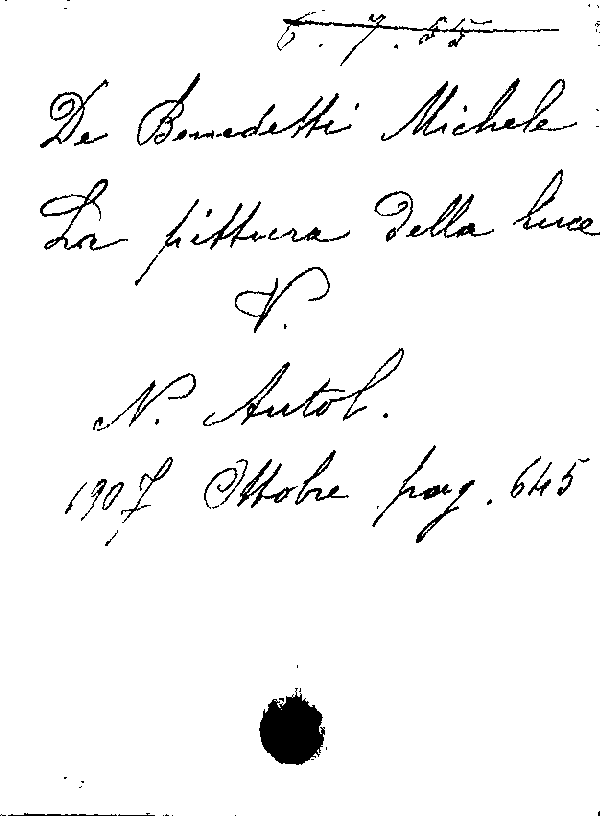 6.7.55
De Benedetti Michele
La pittura della luce
V.
N. Antol.
1907 Ottobre pag. 645